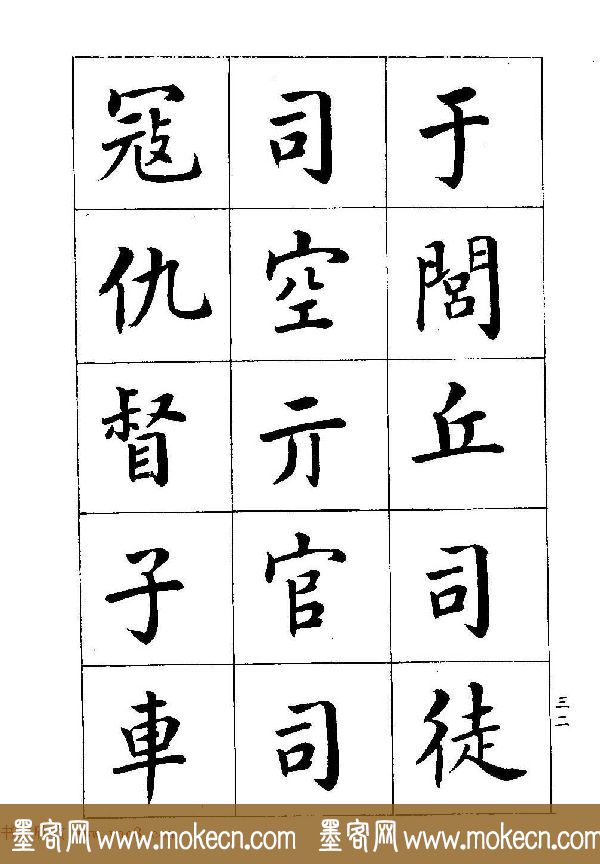 于閭丘司徒
司空亓官司
寇仉督子車
三二
墨客网 www.mokecn.com 墨客网 www.mokecn.com